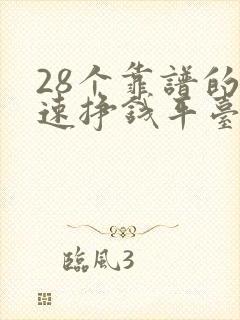 28个靠譜的
速挣錢平臺
臨風3